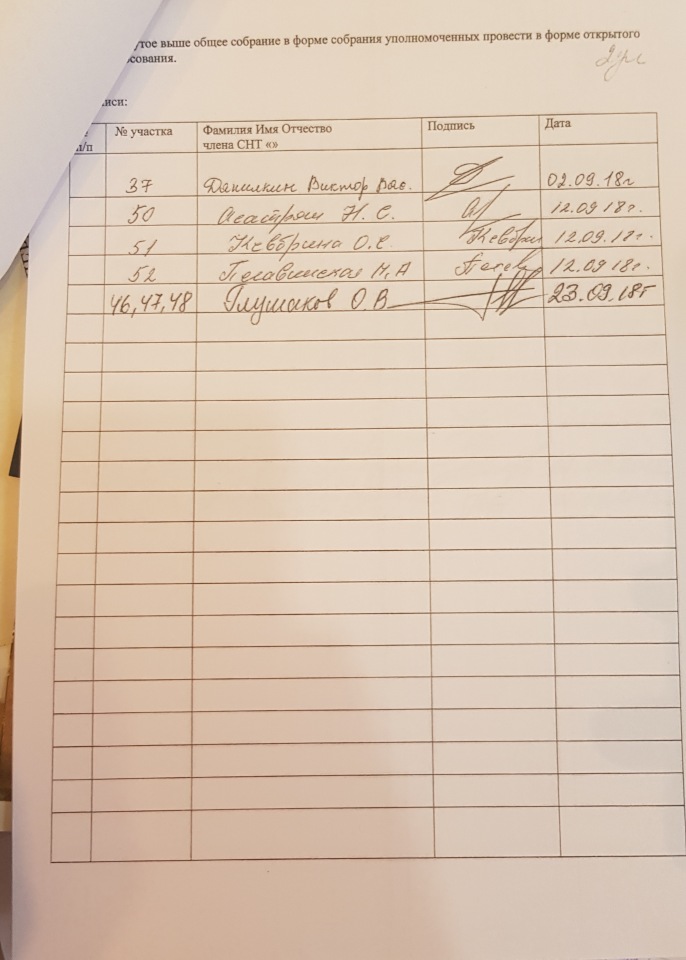 утое выше общее собрание в форме собрания уполномоченных провести в форме открытого
сования.
иси:
п/п № участка Фамилия Имя Отчество члена СНТ «» Подпись Дата
37 Данилкин Виктор Вас. 02.09.18г
50 Н. С. 12.09 18г.
51 Кевбрина О.С 12.09.18г.
52 М.А 12.09 18г.
46,47,48 Глушаков О.В 23.09.18г